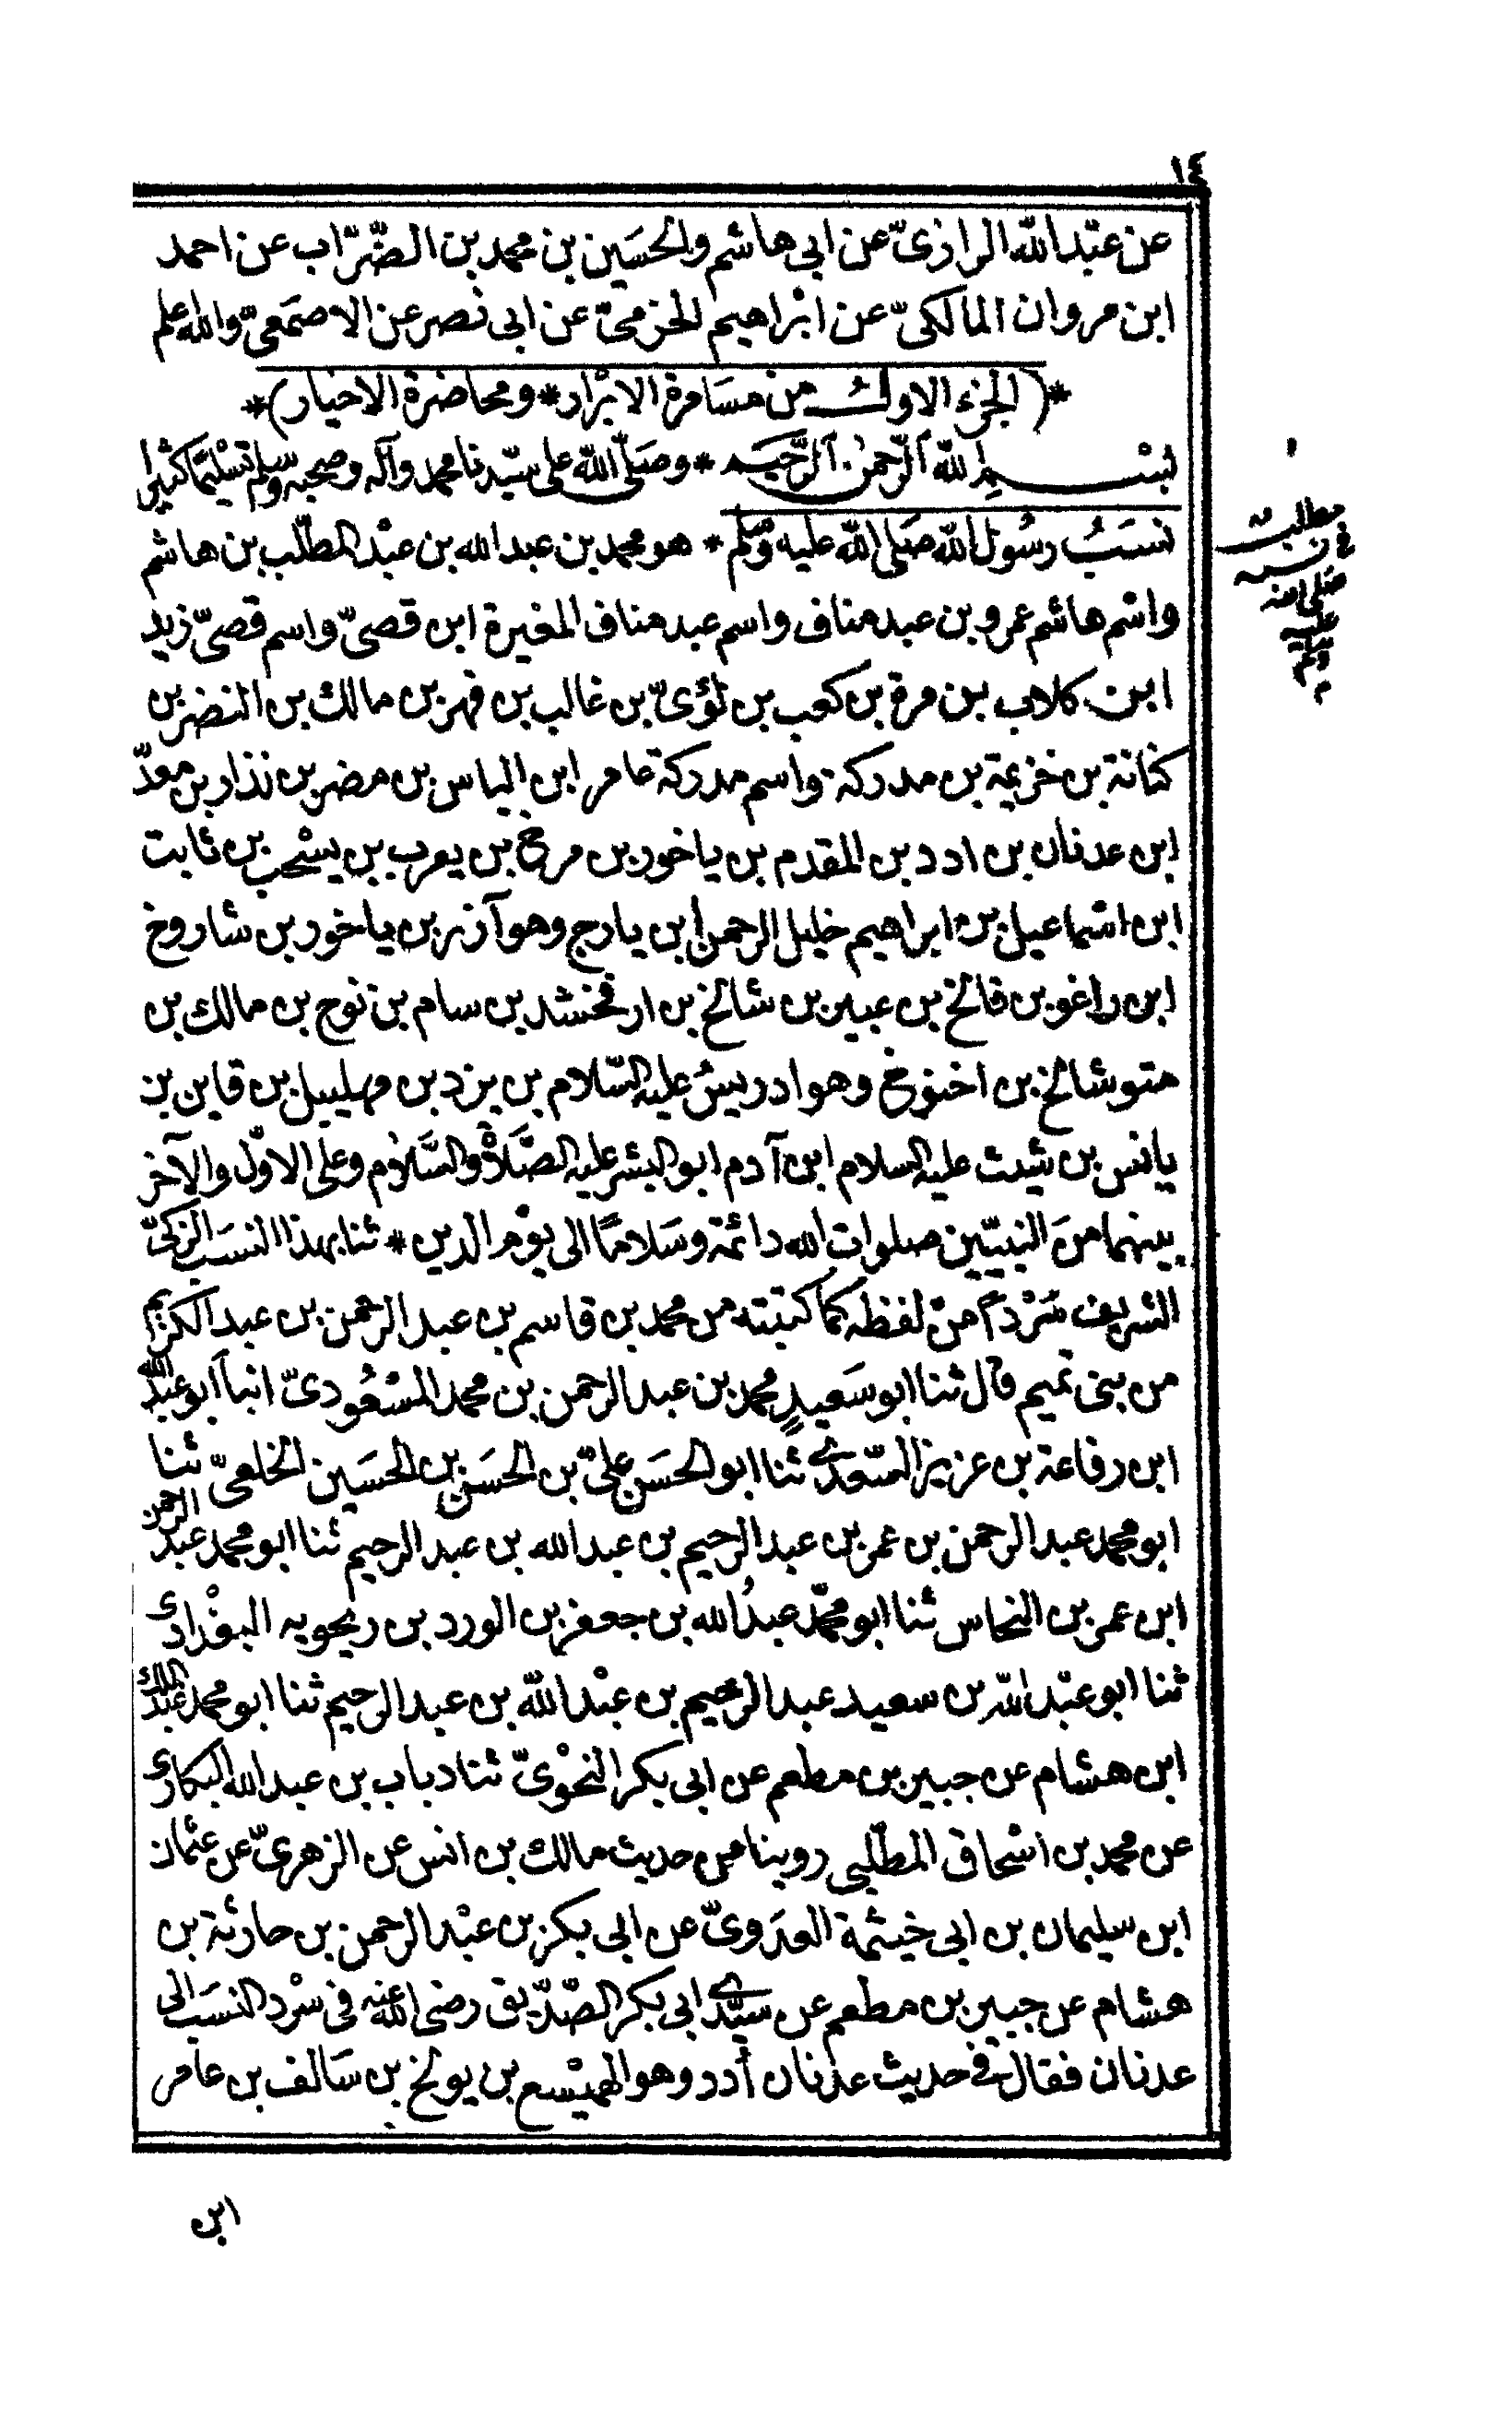 ١٤
عن عبد الله الرازىّ عن ابى هاشم والحسَين بن محمد بن الضّرّاب عن احمد
ابن مروان المالكىّ عن ابْراهيم الحزمىّ عن ابى نصر عن الاصمَعىّ والله اعلم
*(الجزء الاول من مسَامرة الابْرار* ومحاضرة الاخيار)*
بسْم الله الرّحمن الرّحيم * وصَلّى الله على سيّدنا محمد وآله وصحبه وسلم تسْليمًا كثيرا
نسَبُ رسُول الله صَلى الله عليه وسَلم * هو محمد بن عبد الله بن عبْد المطّلب بن هاشم
واسْم هاشم عمرو بن عبد مناف واسم عبد مناف المغيرة ابن قصىّ واسم قصىّ زيد
ابن كلاب بن مرة بن كعب بن لؤىّ بن غالب بن فهر بن مالك بن النضر بن
كنانة بن خزيمة بن مدركة واسم مدركة عامر ابن الياس بن مضر بن نذار بن معدّ
ابن عدنان بن ادد بن المقدم بن ياخور بن مرخ بن يعرب بن يسْحب بن ثابت
ابن اسْماعيل بن ابراهيم خليل الرحمن ابن يارج وهو آزر بن ياخور بن شاروخ
ابن راغو بن فالخ بن عبير بن شالخ بن ارفخشد بن سام بن نوح بن مالك بن
متوشالخ بن اخنوخ وهو ادريسُ عليه السّلام بن يزد بن مهليل بن قاين بن
يانس بن شيث عليه السلام ابن آدم ابو البشر عليه الصّلاة والسّلام وعلى الاوّل والآخر
بينهما منَ النبيّين صلوات الله دائمة وسَلامًا الى يوْم الدين * ثنا بهذا النسَب الزكىّ
الشريف سَرْدًا منْ لفظه كما كتبته من محمد بن قاسم بن عبد الرحمن بن عبد الكريم
من بنى تميم قال ثنا ابو سَعيدٍ محمد بن عبد الرحمن بن محمد المسْعُودىّ انبأ ابو عبد الله
ابن رفاعة بن عزيز السّعدى ثنا ابو الحسَن علىّ بن الحسَن بن الحسَين الخلعىّ ثنا
ابو محمد عبد الرحمن بن عمر بن عبد الرحيم بن عبد الله بن عبد الرحيم ثنا ابو محمد عبد الرحمن
ابن عمر بن النحاس ثنا ابو محمّد عبدُ الله بن جعفر بن الورد بن ريحويه البغْدادى
ثنا ابو عبْد الله بن سعيد عبد الرحيم بن عبْد الله بن عبد الرحيم ثنا ابو محمد عبد الملك
ابن هشام عن جبير بن مطعم عن ابى بكر النحْوىّ ثنا دباب بن عبد الله البكارى
عن محمد بن اسْحاق المطّلبى روينا من حديث مالك بن انس عن الزهرىّ عن عثمان
ابن سليمان بن ابى خيثمة العدَوىّ عن ابى بكر بن عبْد الرحمن بن حارثة بن
هشام عن جبير بن مطعم عن سيّدى ابى بكر الصّدّيق رضى الله عنه فى سرْد النسَب الى
عدنان فقال فى حديث عدنان أدد وهو الهميْسع بن يولخ بن سَالف بن عامر
ابن
مطلب
فى نسبه
صلى الله
عليه
وسلم